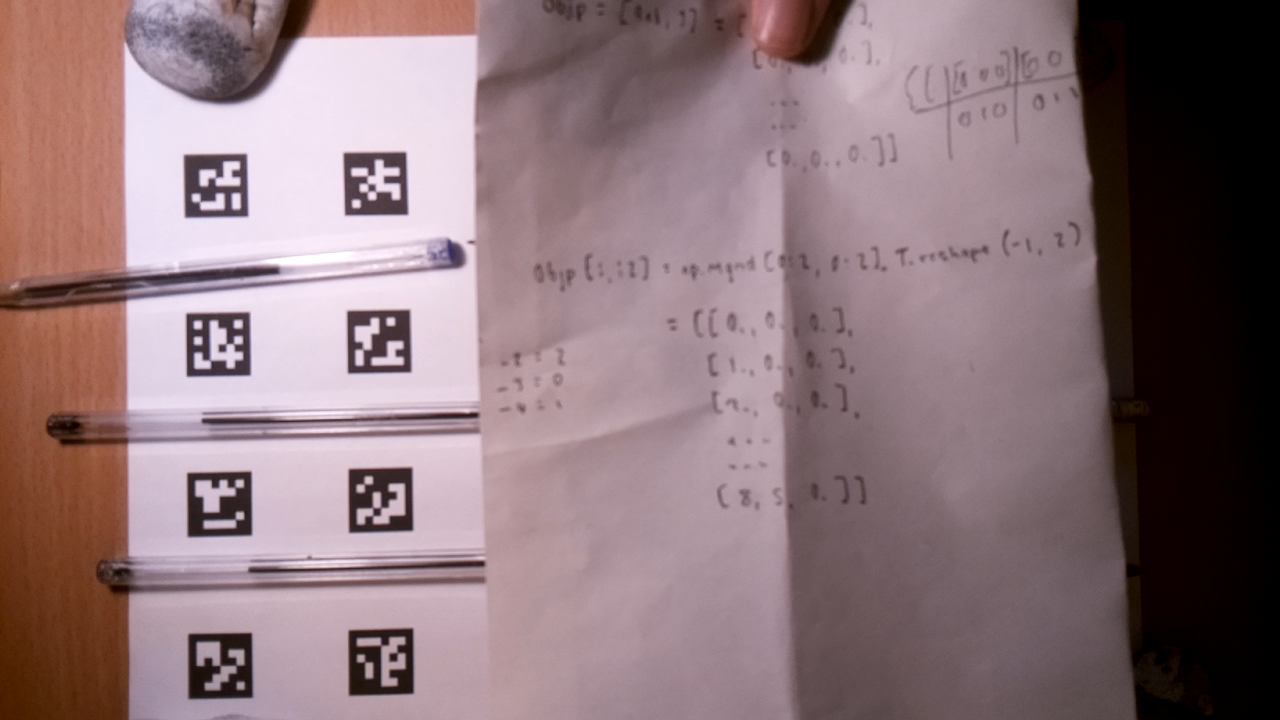 Objp = [
[0., 0.],
...
...
[0., 0., 0.]]
{[ [0 0 0] [0 0
0 1 0
Objp [:,:2] = np.mgrid [0:2, 0:2]. T.reshape (-1, 2)
= [[0., 0., 0.],
[1., 0., 0.],
[2., 0., 0.],
...
...
[8, 5, 0.]]
-2 = 2
-3 = 0
-4 = 1